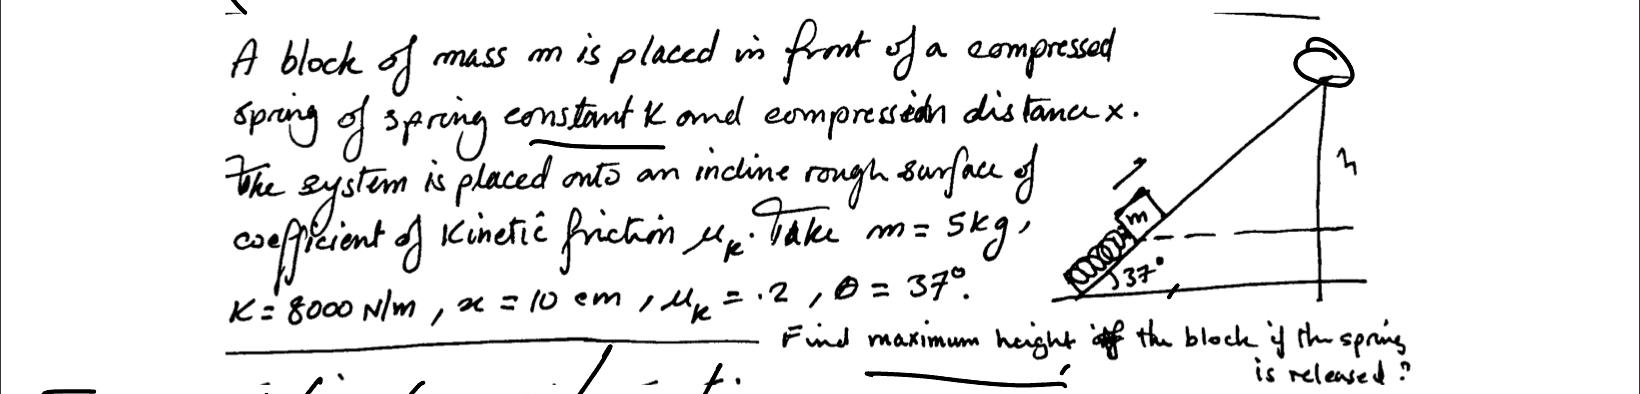 A block of mass m is placed in front of a compressed
spring of spring constant K and compression distance x.
The system is placed onto an incline rough surface of
coefficient of Kinetic friction μk. Take m = 5kg,
K = 8000 N/m, x = 10 cm, μk = .2, θ = 37°.
Find maximum height of the block if the spring
is released?
h
m
37°